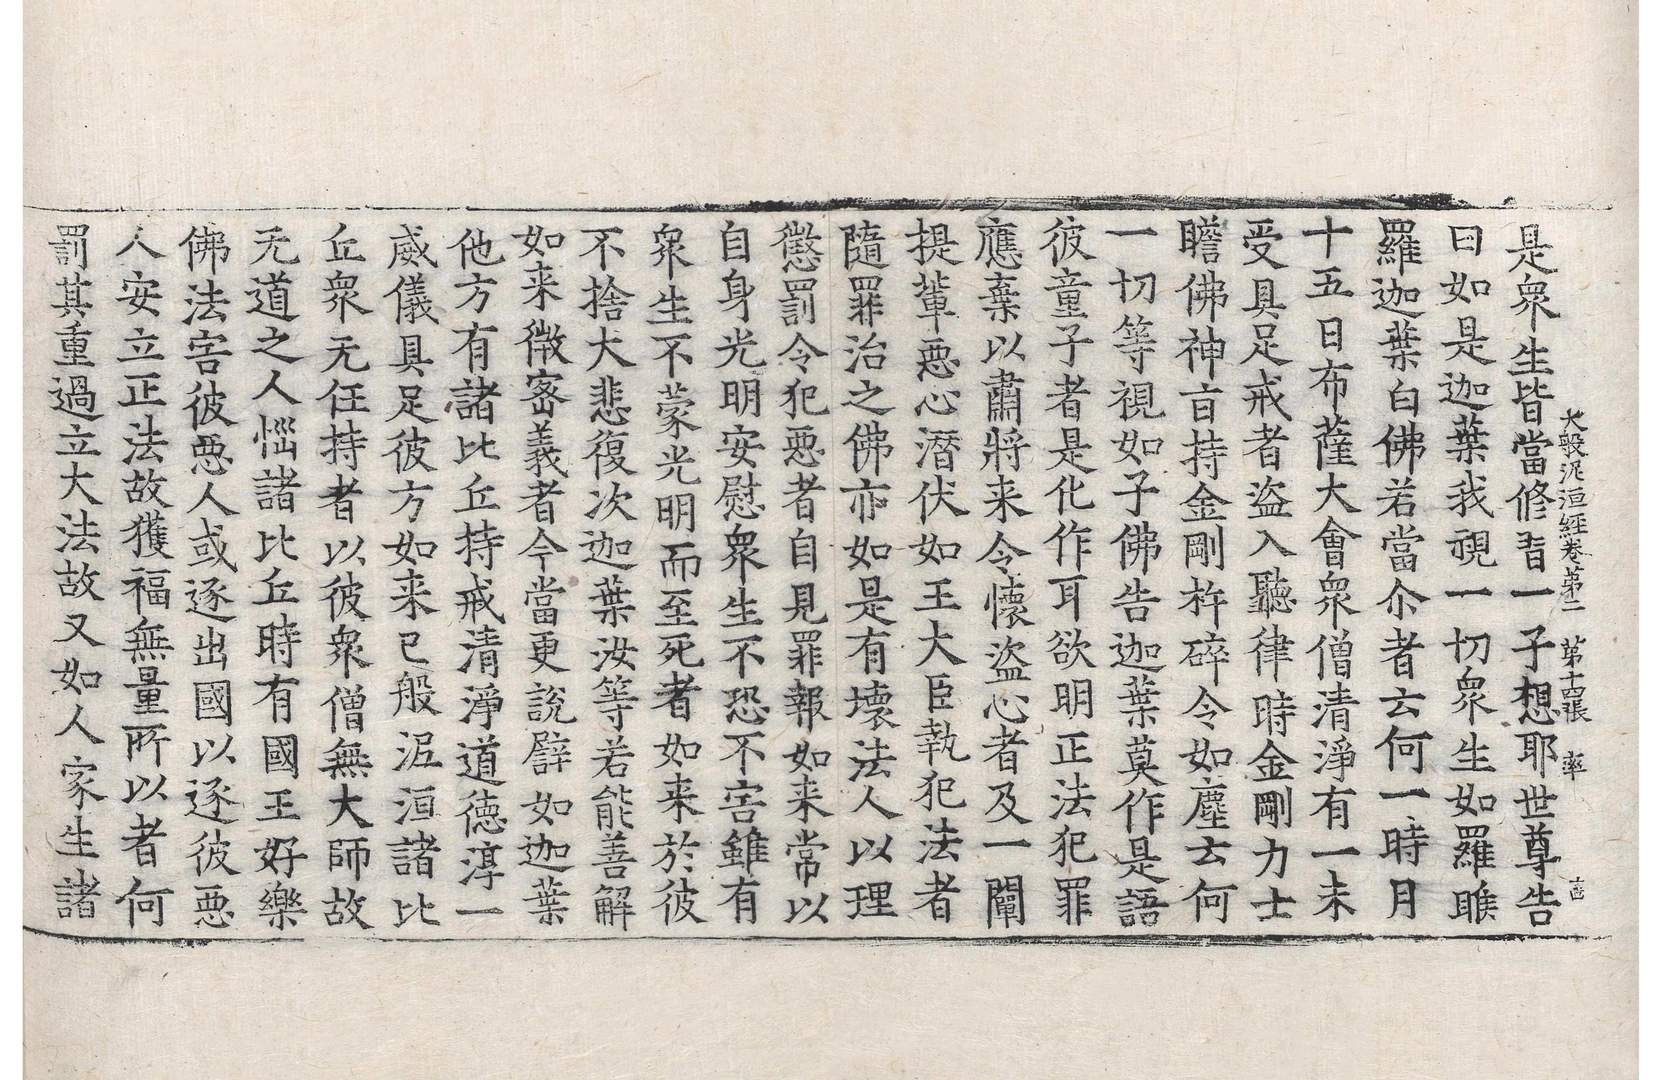 大般泥洹經卷第二　第十四張　率　十四
是衆生皆當修習一子想耶世尊告
曰如是迦葉我視一切衆生如羅睺
羅迦葉白佛若當尒者云何一時月
十五日布薩大會衆僧清淨有一未
受具足戒者盜入聽律時金剛力士
瞻佛神旨持金剛杵碎令如塵云何
一切等視如子佛告迦葉莫作是語
彼童子者是化作耳欲明正法犯罪
應棄以肅將来令懷盜心者及一闡
提輩悪心潛伏如王大臣執犯法者
隨罪治之佛亦如是有壞法人以理
懲罰令犯悪者自見罪報如来常以
自身光明安慰衆生不恐不害雖有
衆生不蒙光明而至死者如来於彼
不捨大悲復次迦葉汝等若能善解
如来微密義者今當更說譬如迦葉
他方有諸比丘持戒清淨道德淳一
威儀具足彼方如来已般泥洹諸比
丘衆无任持者以彼衆僧無大師故
无道之人惱諸比丘時有國王好樂
佛法害彼悪人或逐出國以逐彼悪
人安立正法故獲福無量所以者何
罰其重過立大法故又如人家生諸